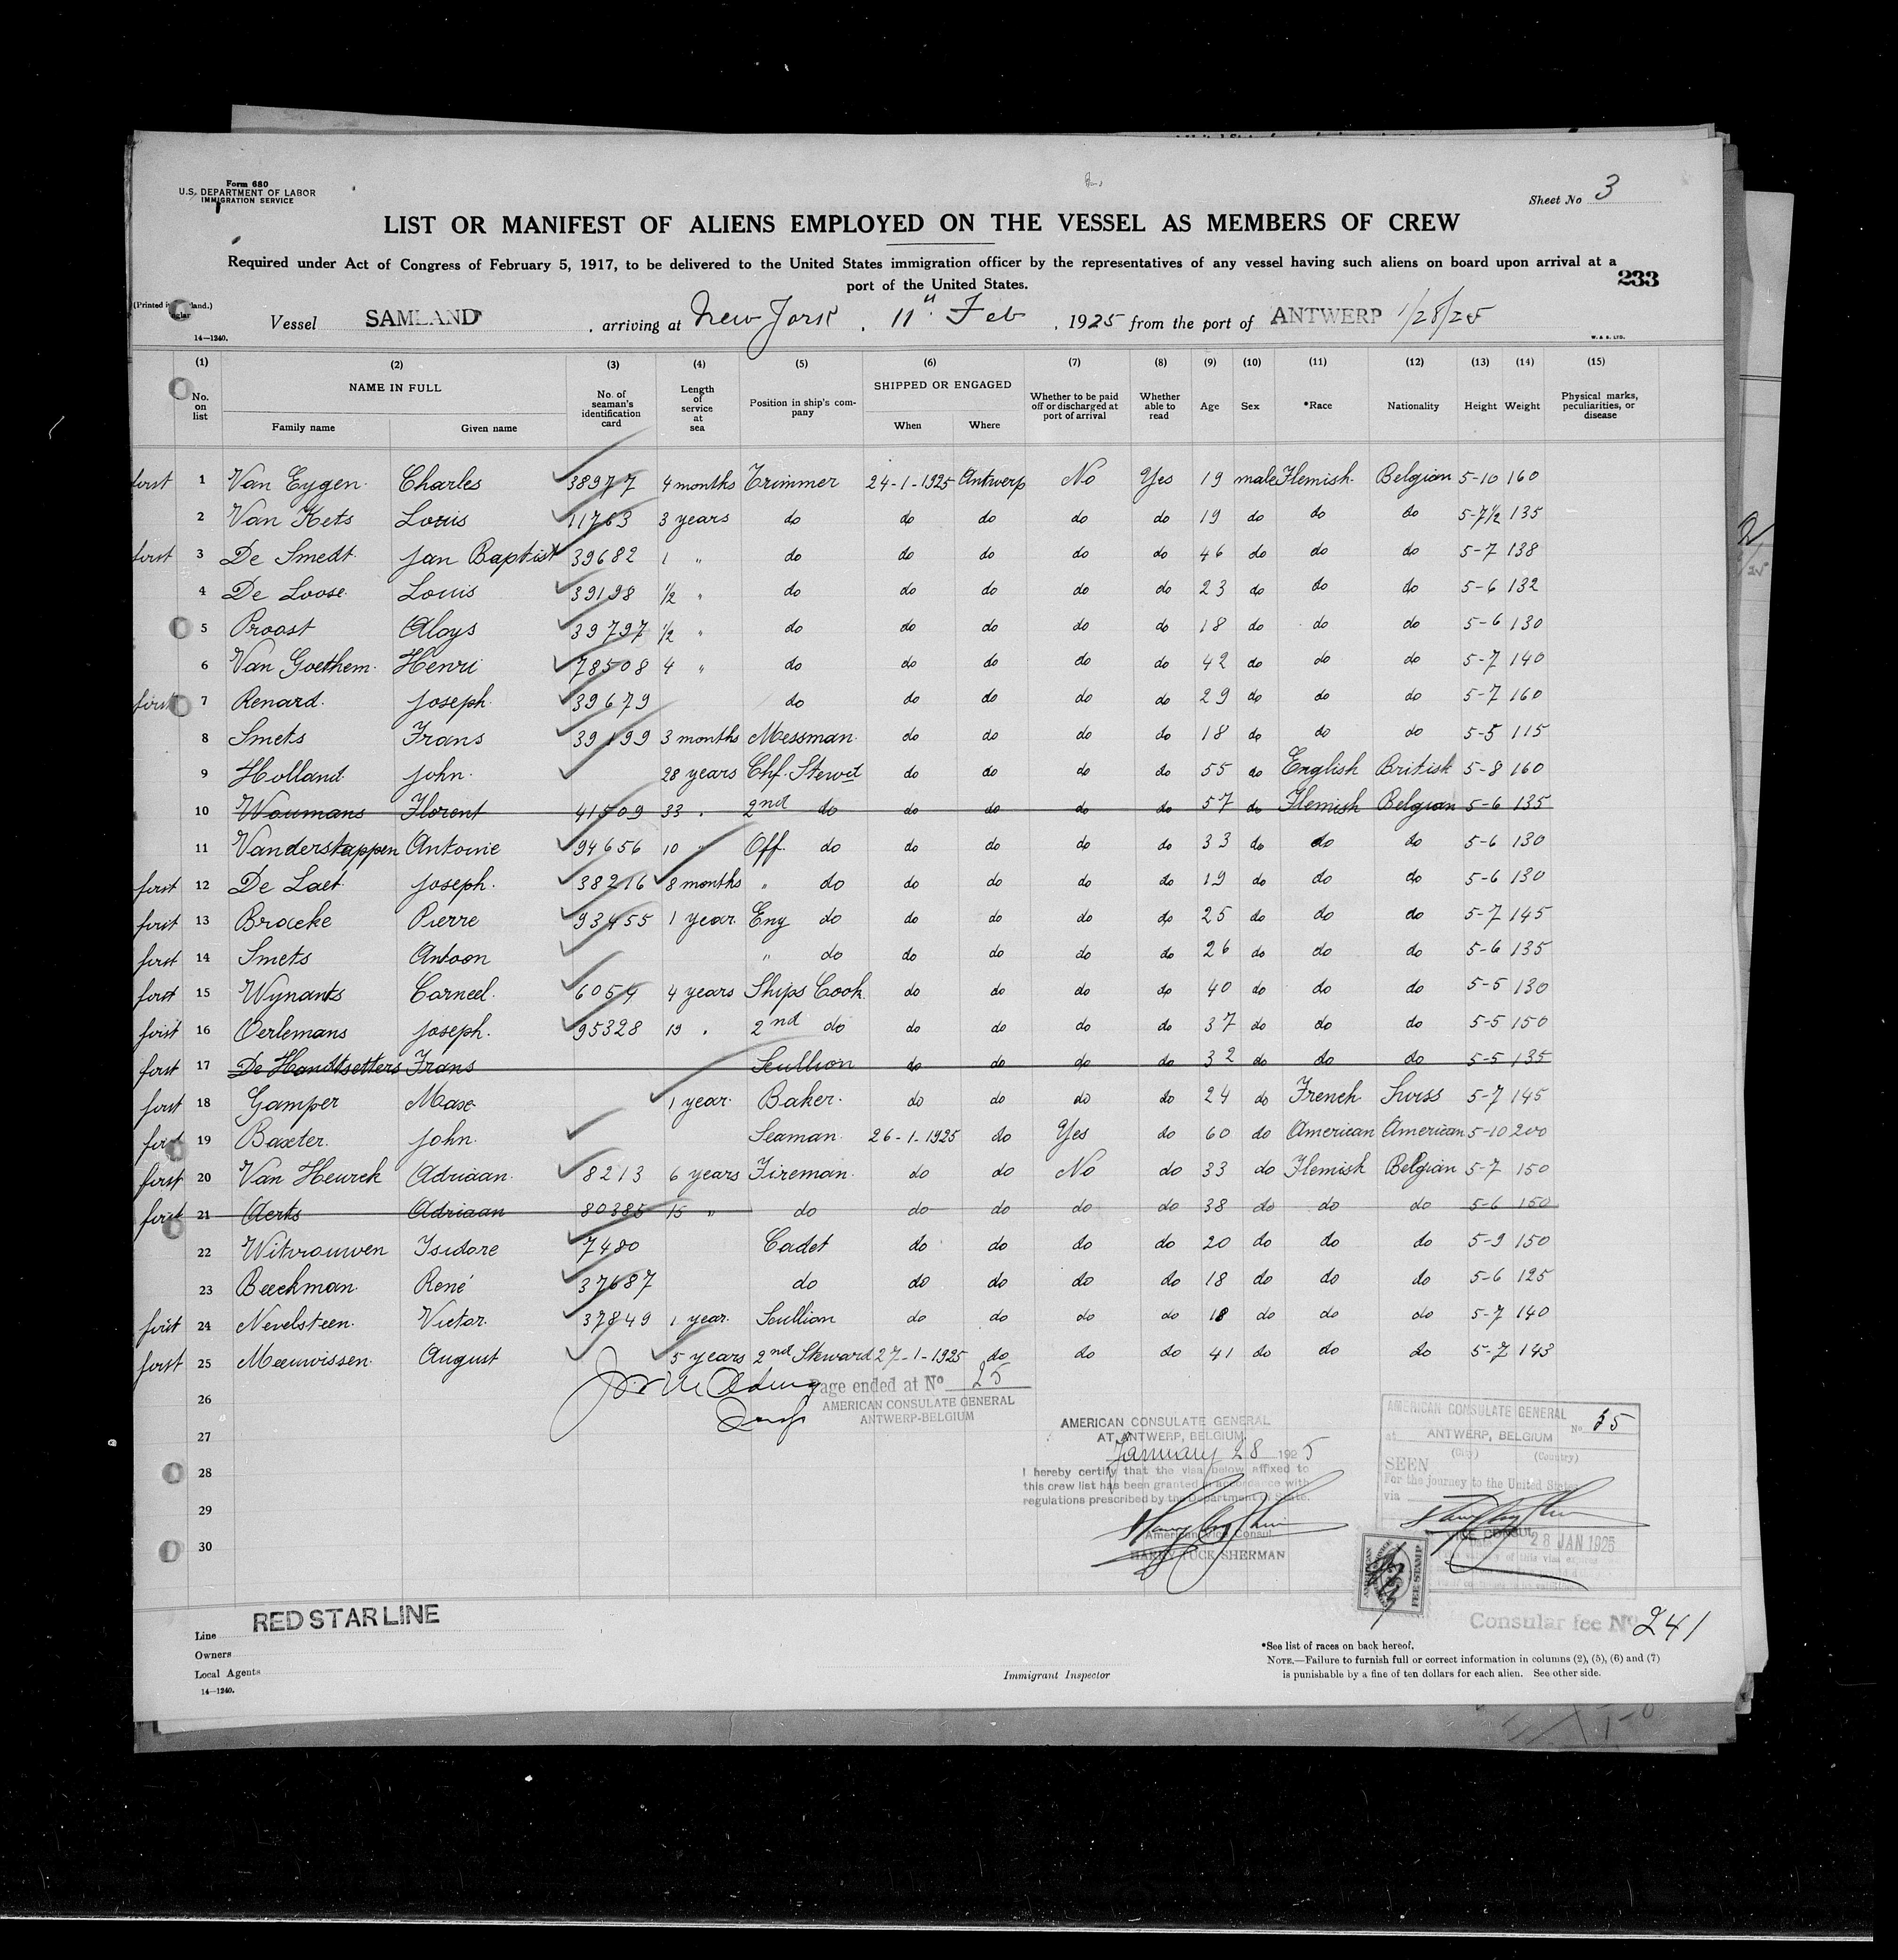 Form 680
U.S. DEPARTMENT OF LABOR
IMMIGRATION SERVICE
Sheet No 3
LIST OR MANIFEST OF ALIENS EMPLOYED ON THE VESSEL AS MEMBERS OF CREW
Required under Act of Congress of February 5, 1917, to be delivered to the United States immigration officer by the representatives of any vessel having such aliens on board upon arrival at a
port of the United States.
233
14—1240.
Vessel SAMLAND, arriving at New York, 11" Feb, 1925 from the port of ANTWERP 1/28/25
W. & S. LTD.
(1) (2) (3) (4) (5) (6) (7) (8) (9) (10) (11) (12) (13) (14) (15)
No. on list NAME IN FULL Family name Given name No. of seaman's identification card Length of service at sea Position in ship's company SHIPPED OR ENGAGED When Where Whether to be paid off or discharged at port of arrival Whether able to read Age Sex *Race Nationality Height Weight Physical marks, peculiarities, or disease
first 1 Van Eygen Charles 38977 4 months Trimmer 24-1-1925 Antwerp No Yes 19 male Flemish Belgian 5-10 160
2 Van Kets Louis 11763 3 years do do do do do 19 do do do 5-7½ 135
first 3 De Smedt Jan Baptist 39682 1 " do do do do do 46 do do do 5-7 138
4 De Loose Louis 39198 ½ " do do do do do 23 do do do 5-6 132
5 Proost Aloys 39797 ½ " do do do do do 18 do do do 5-6 130
6 Van Goethem Henri 78508 4 " do do do do do 42 do do do 5-7 140
first 7 Renard Joseph 39679 do do do do do 29 do do do 5-7 160
8 Smets Frans 39199 3 months Messman do do do do 18 do do do 5-5 115
9 Holland John 28 years Chf. Stewd do do do do 55 do English British 5-8 160
10 Woumans Florent 41509 33 " 2nd do do do do do 57 do Flemish Belgian 5-6 135
11 Vanderstappen Antoine 94656 10 " Off. do do do do do 33 do do do 5-6 130
first 12 De Laet Joseph 38216 8 months " do do do do do 19 do do do 5-6 130
first 13 Broecke Pierre 93455 1 year Eng do do do do do 25 do do do 5-7 145
first 14 Smets Antoon " do do do do do 26 do do do 5-6 135
first 15 Wynants Corneel 6054 4 years Ships Cook do do do do 40 do do do 5-5 130
first 16 Oerlemans Joseph 95328 19 " 2nd do do do do do 37 do do do 5-5 150
first 17 De Handtsetters Frans Scullion do do do do 32 do do do 5-5 135
first 18 Gamper Max 1 year Baker do do do do 24 do French Swiss 5-7 145
first 19 Baxter John Seaman 26-1-1925 do Yes do 60 do American American 5-10 200
first 20 Van Heurck Adriaan 8213 6 years Fireman do do No do 33 do Flemish Belgian 5-7 150
first 21 Aerts Adriaan 80385 15 " do do do do do 38 do do do 5-6 150
22 Witvrouwen Isidore 7480 Cadet do do do do 20 do do do 5-9 150
23 Beeckman René 37687 do do do do do 18 do do do 5-6 125
first 24 Nevelsteen Victor 37849 1 year Scullion do do do do 18 do do do 5-7 140
first 25 Meeuwissen August 5 years 2nd Steward 27-1-1925 do do do 41 do do do 5-7 143
26
27
28
29
30
Page ended at No 25
AMERICAN CONSULATE GENERAL
ANTWERP-BELGIUM
AMERICAN CONSULATE GENERAL
AT ANTWERP, BELGIUM
January 28 1925
I hereby certify that the visa below affixed to
this crew list has been granted in accordance with
regulations prescribed by the Department of State.
American Vice Consul
HARRY TUCK SHERMAN
AMERICAN CONSULATE GENERAL
at ANTWERP, BELGIUM No
(City) (Country)
SEEN
For the journey to the United States
via
VICE CONSUL
28 JAN 1925
FEE STAMP
Consular fee No 241
Line RED STAR LINE
Owners
Local Agents
14—1240.
Immigrant Inspector
*See list of races on back hereof.
NOTE.—Failure to furnish full or correct information in columns (2), (5), (6) and (7)
is punishable by a fine of ten dollars for each alien. See other side.